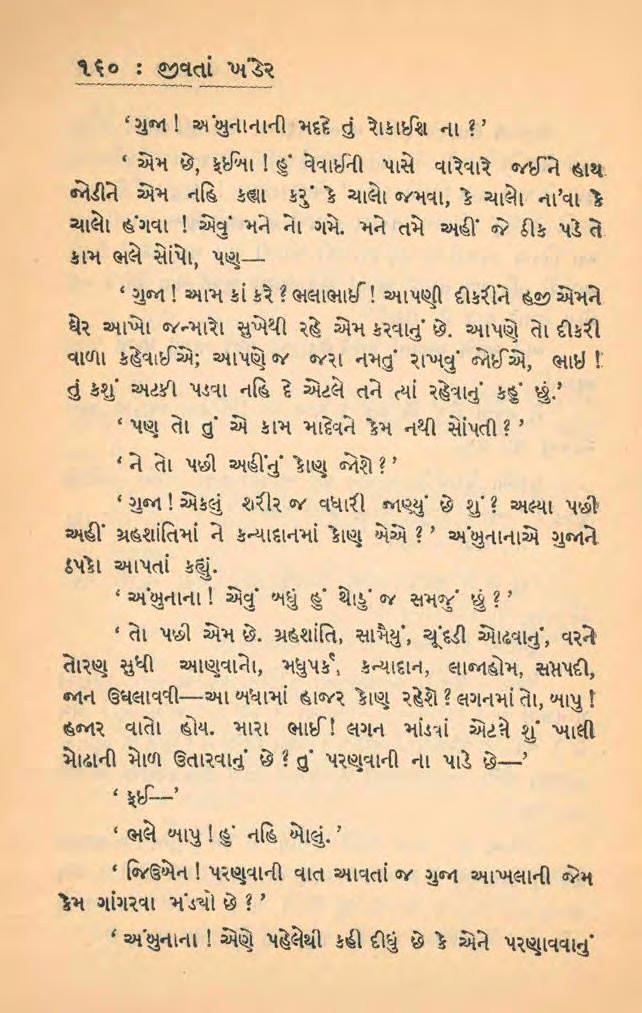 ૧૬૦ : જીવતાં ખંડેર
‘ ગુજા ! અંબુનાનાની મદદે તું રોકાઈશ ના ? ’
‘ એમ છે, ફઈબા ! હું વેવાઈની પાસે વારેવારે જઈને હાથ
જોડીને એમ નહિ કહ્યા કરું કે ચાલો જમવા, કે ચાલો ના’વા કે
ચાલો હંગવા ! એવું મને નો ગમે. મને તમે અહીં જે ઠીક પડે તે
કામ ભલે સોંપો, પણ—
‘ ગુજા ! આમ કાં કરે ? ભલાભાઈ ! આપણી દીકરીને હજી એમને
ઘેર આખો જન્મારો સુખેથી રહે એમ કરવાનું છે. આપણે તો દીકરી
વાળા કહેવાઈએ; આપણે જ જરા નમતું રાખવું જોઈએ, ભાઇ !
તું કશું અટકી પડવા નહિ દે એટલે તને ત્યાં રહેવાનું કહું છું.’
‘ પણ તો તું એ કામ માદેવને કેમ નથી સોંપતી ? ’
‘ ને તો પછી અહીંનું કોણ જોશે ? ’
‘ ગુજા ! એકલું શરીર જ વધારી જાણ્યું છે શું ? અલ્યા પછી
અહીં ગ્રહશાંતિમાં ને કન્યાદાનમાં કોણ બેએ ? ’ અંબુનાનાએ ગુજાને
ઠપકો આપતાં કહ્યું.
‘ અંબુનાના ! એવું બધું હું થોડું જ સમજું છું ? ’
‘ તો પછી એમ છે. ગ્રહશાંતિ, સામૈયું, ચૂંદડી ઓઢવાનું, વરને
તોરણ સુધી આણવાનો, મધુપર્ક, કન્યાદાન, લાજાહોમ, સપ્તપદી,
જાન ઉધલાવવી—આ બધામાં હાજર કોણ રહેશે ? લગનમાં તો, બાપુ !
હજાર વાતો હોય. મારા ભાઈ ! લગન માંડવાં એટલે શું ખાલી
મોઢાની મોળ ઉતારવાનું છે ? તું પરણવાની ના પાડે છે—’
‘ ફઈ—’
‘ ભલે બાપુ ! હું નહિ બોલું. ’
‘ જિઉબેન ! પરણવાની વાત આવતાં જ ગુજા આખલાની જેમ
કેમ ગાંગરવા મંડ્યો છે ? ’
‘ અંબુનાના ! એણે પહેલેથી કહી દીધું છે કે એને પરણાવવાનું